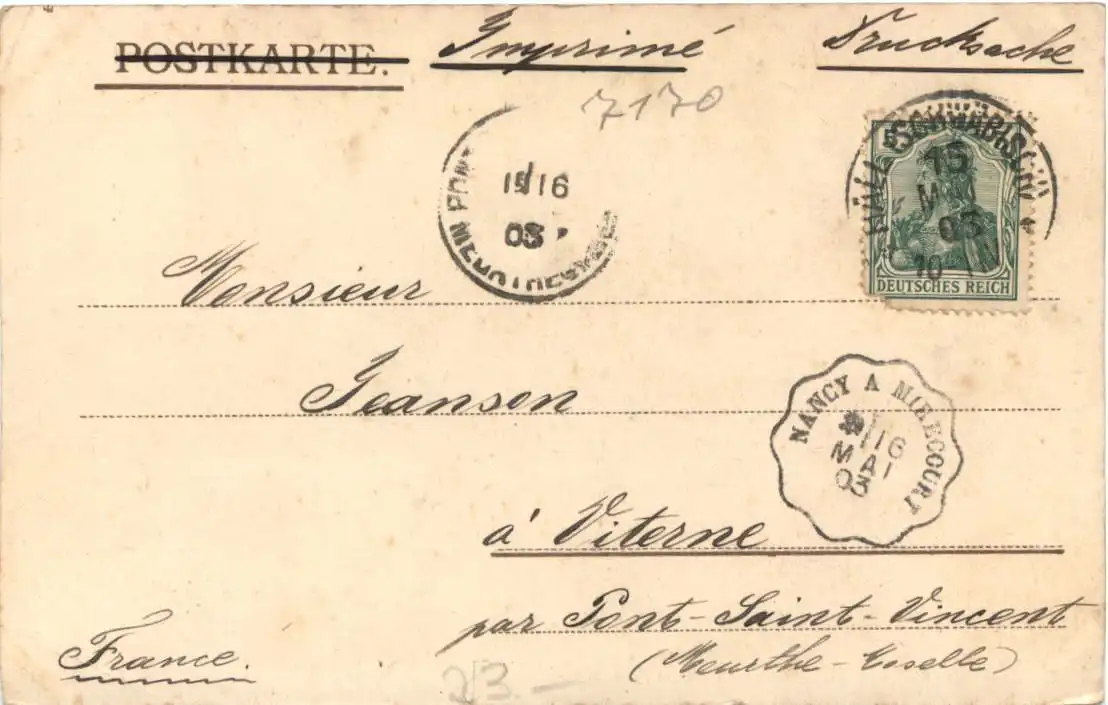 POSTKARTE. Imprimé Drucksache
7170
HALL (SCHWÄBISCH)
15
MAI
03
10
DEUTSCHES REICH
16
03
Monsieur
Jeanson
NANCY A MIRECOURT
16
MAI
03
à Viterne
par Pont-Saint-Vincent
(Meurthe-Moselle)
France.
23.-